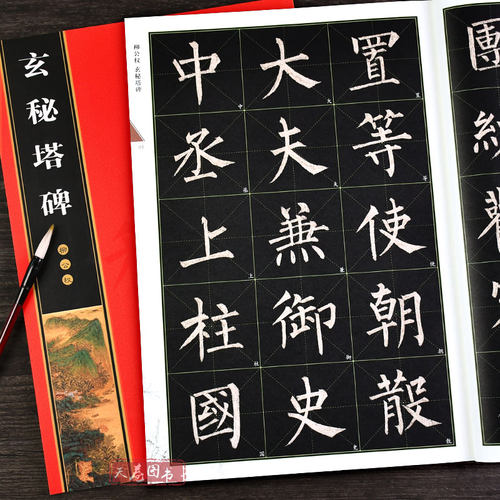 玄秘塔碑
柳公权
柳公权 玄秘塔碑
置等使朝散
大夫兼御史
中丞上柱國